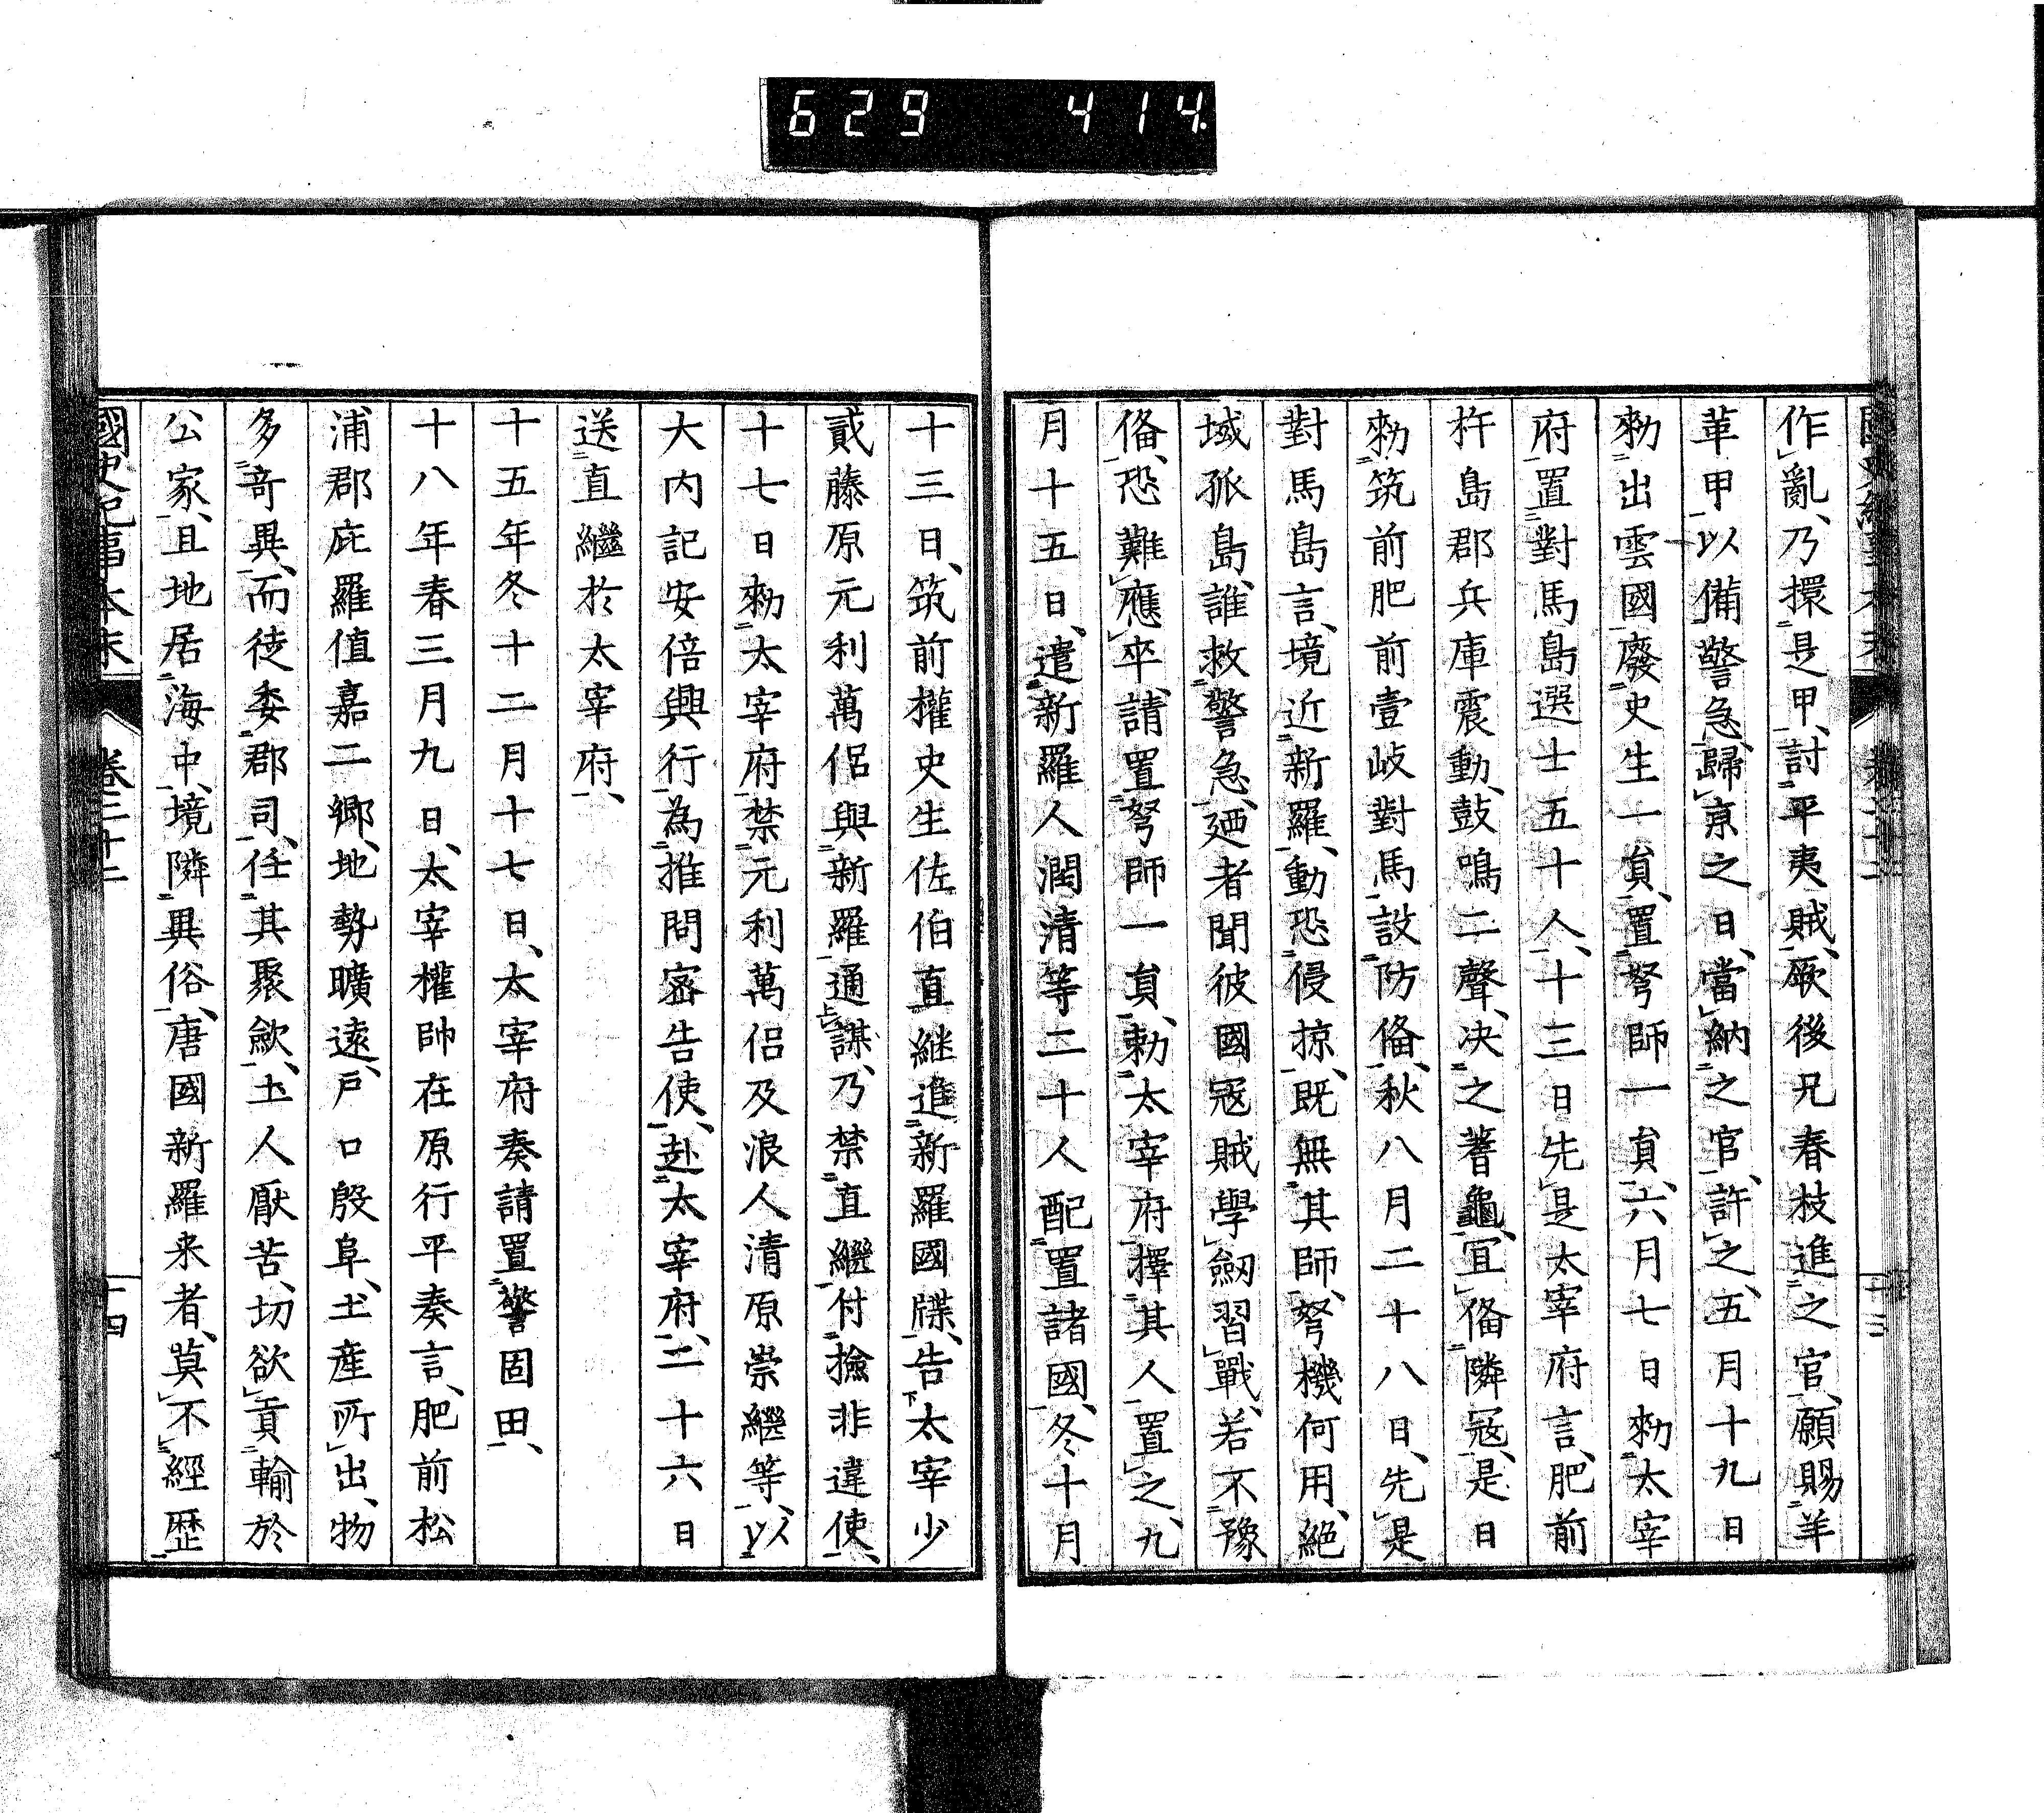 629 414
作亂、乃擐是甲、討平夷賊、厥後兄春枝進之官、願賜羊
革甲以備警急、歸京之日、當納之官、許之、五月十九日
勅出雲國廢史生一負、置弩師一負、六月七日勅太宰
府置對馬島選士五十人、十三日先是太宰府言、肥前
杵島郡兵庫震動、鼓鳴二聲、决之蓍龜、宜俻隣冦、是日
勅筑前肥前壹岐對馬設防俻、秋八月二十八日、先是
對馬島言、境近新羅、動恐侵掠、既無其師、弩機何用、絕
域孤島、誰救警急、廼者聞彼國冦賊學劒習戰、若不豫
俻、恐難應卒、請置弩師一負、勅太宰府擇其人置之、九
月十五日、遣新羅人潤清等二十人配置諸國、冬十月
十三日、筑前權史生佐伯直継進新羅國牒、告太宰少
貳藤原元利萬侶與新羅通謀、乃禁直繼付撿非違使、
十七日勅太宰府禁元利萬侶及浪人清原崇繼等、以
大内記安倍興行為推問密告使、赴太宰府、二十六日
送直繼於太宰府、
十五年冬十二月十七日、太宰府奏請置警固田、
十八年春三月九日、太宰權帥在原行平奏言、肥前松
浦郡庇羅值嘉二鄉、地勢曠遠、戸口殷阜、土產所出、物
多奇異、而徒委郡司、任其聚歛、土人厭苦、切欲貢輸於
公家、且地居海中、境隣異俗、唐國新羅来者、莫不經歷
國史紀事本末 卷三十二 十四